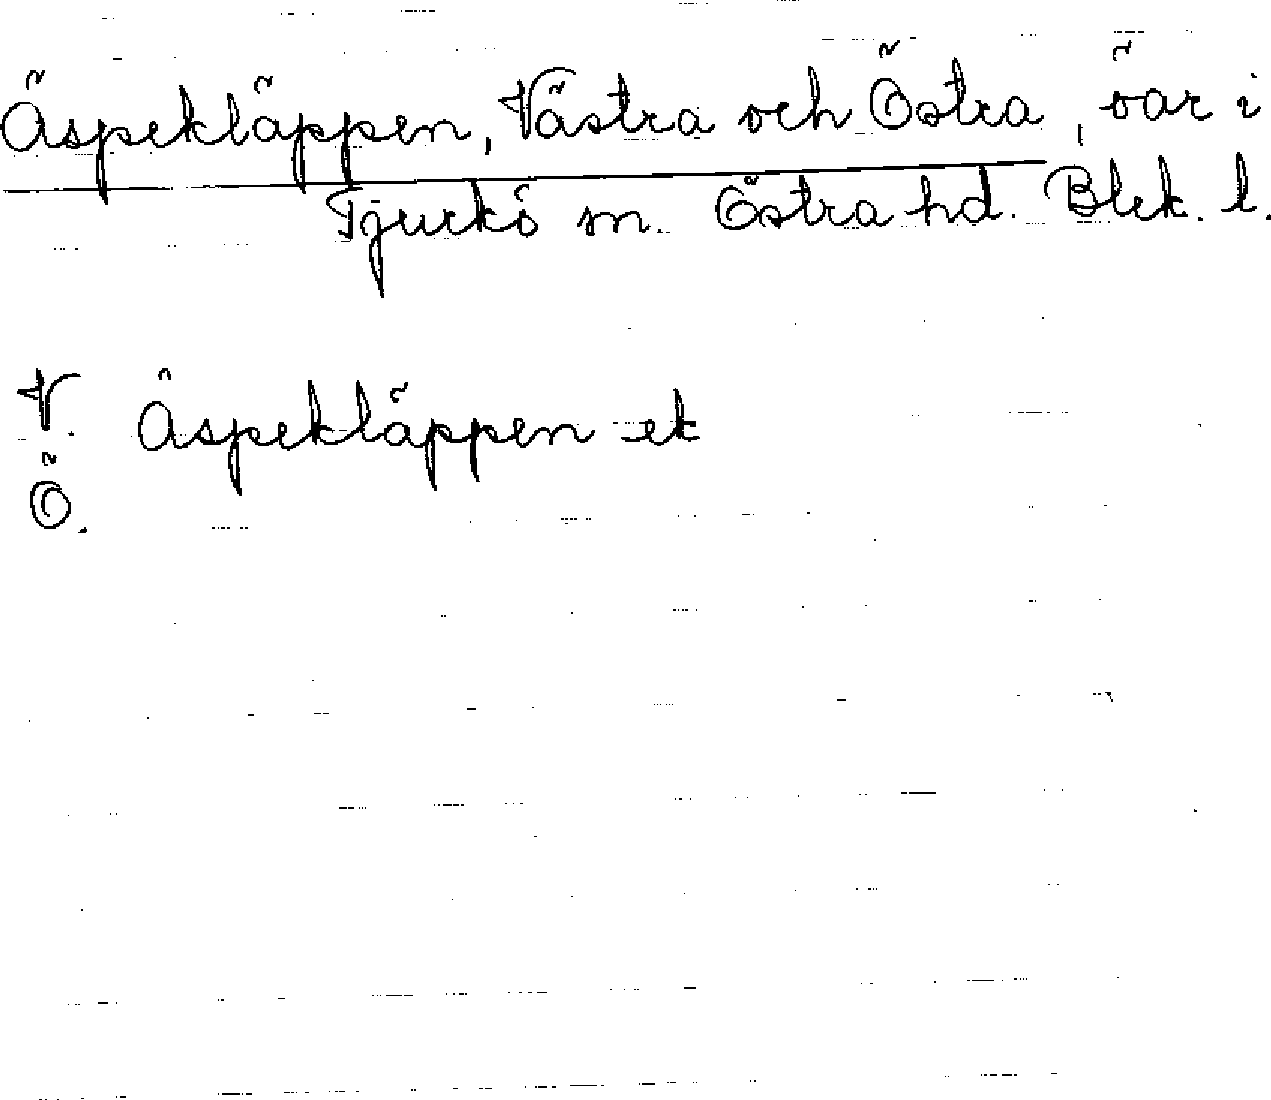 Äspekläppen, Västra och Östra, öar i
Tjurkö sn. Östra hd. Blek. l.
V. Äspekläppen ek
Ö.